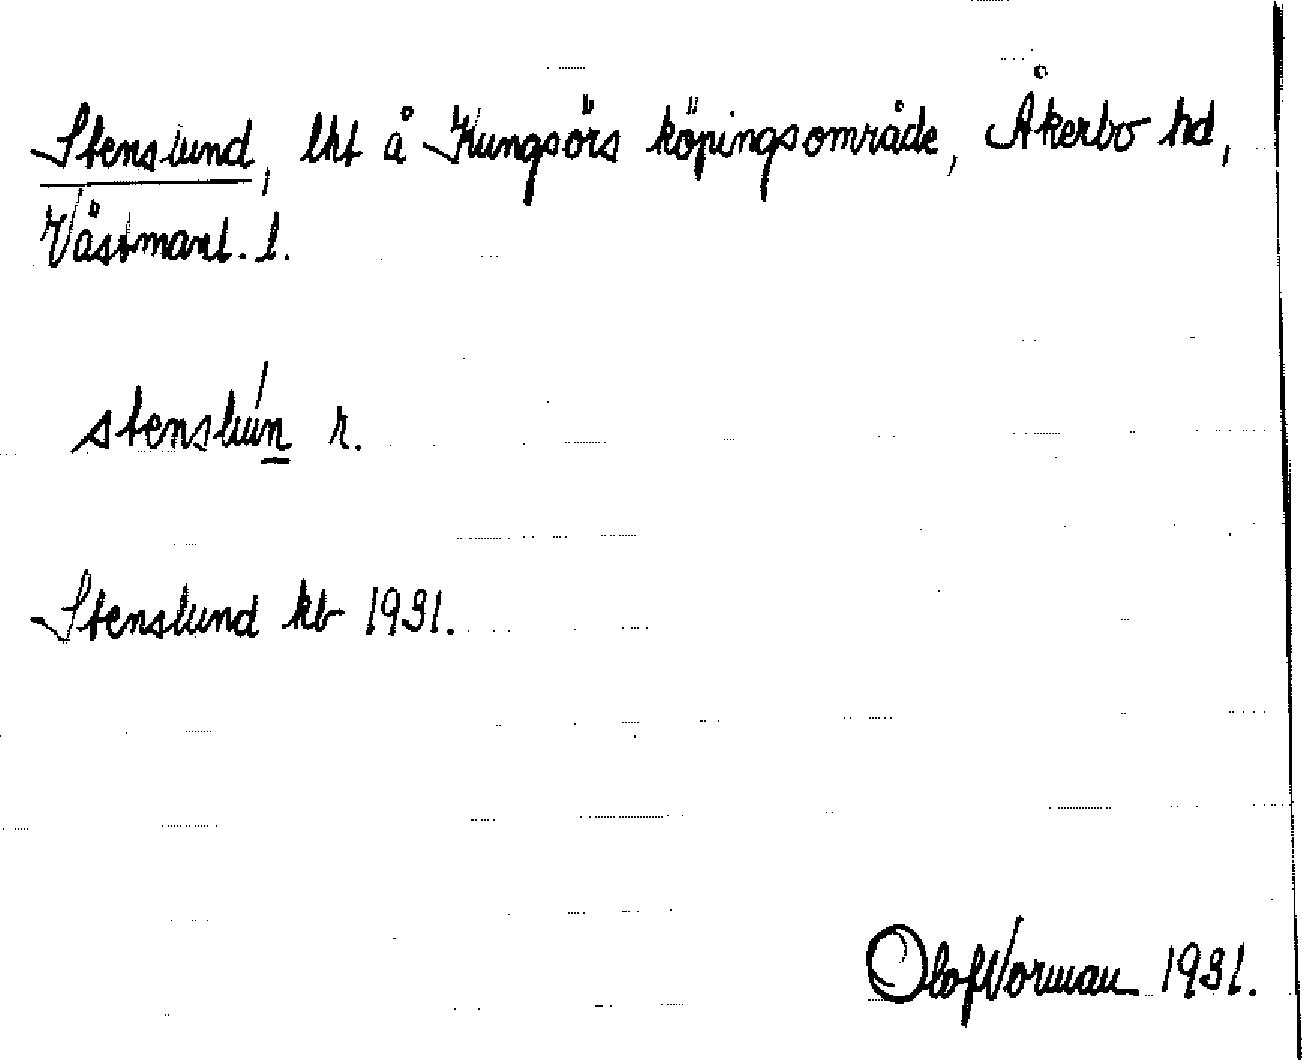 Stenslund, lht å Kungsörs köpingsområde, Åkerbo hd,
Västmanl. l.
stenslún r.
Stenslund kb 1931.
Olof Norman 1931.